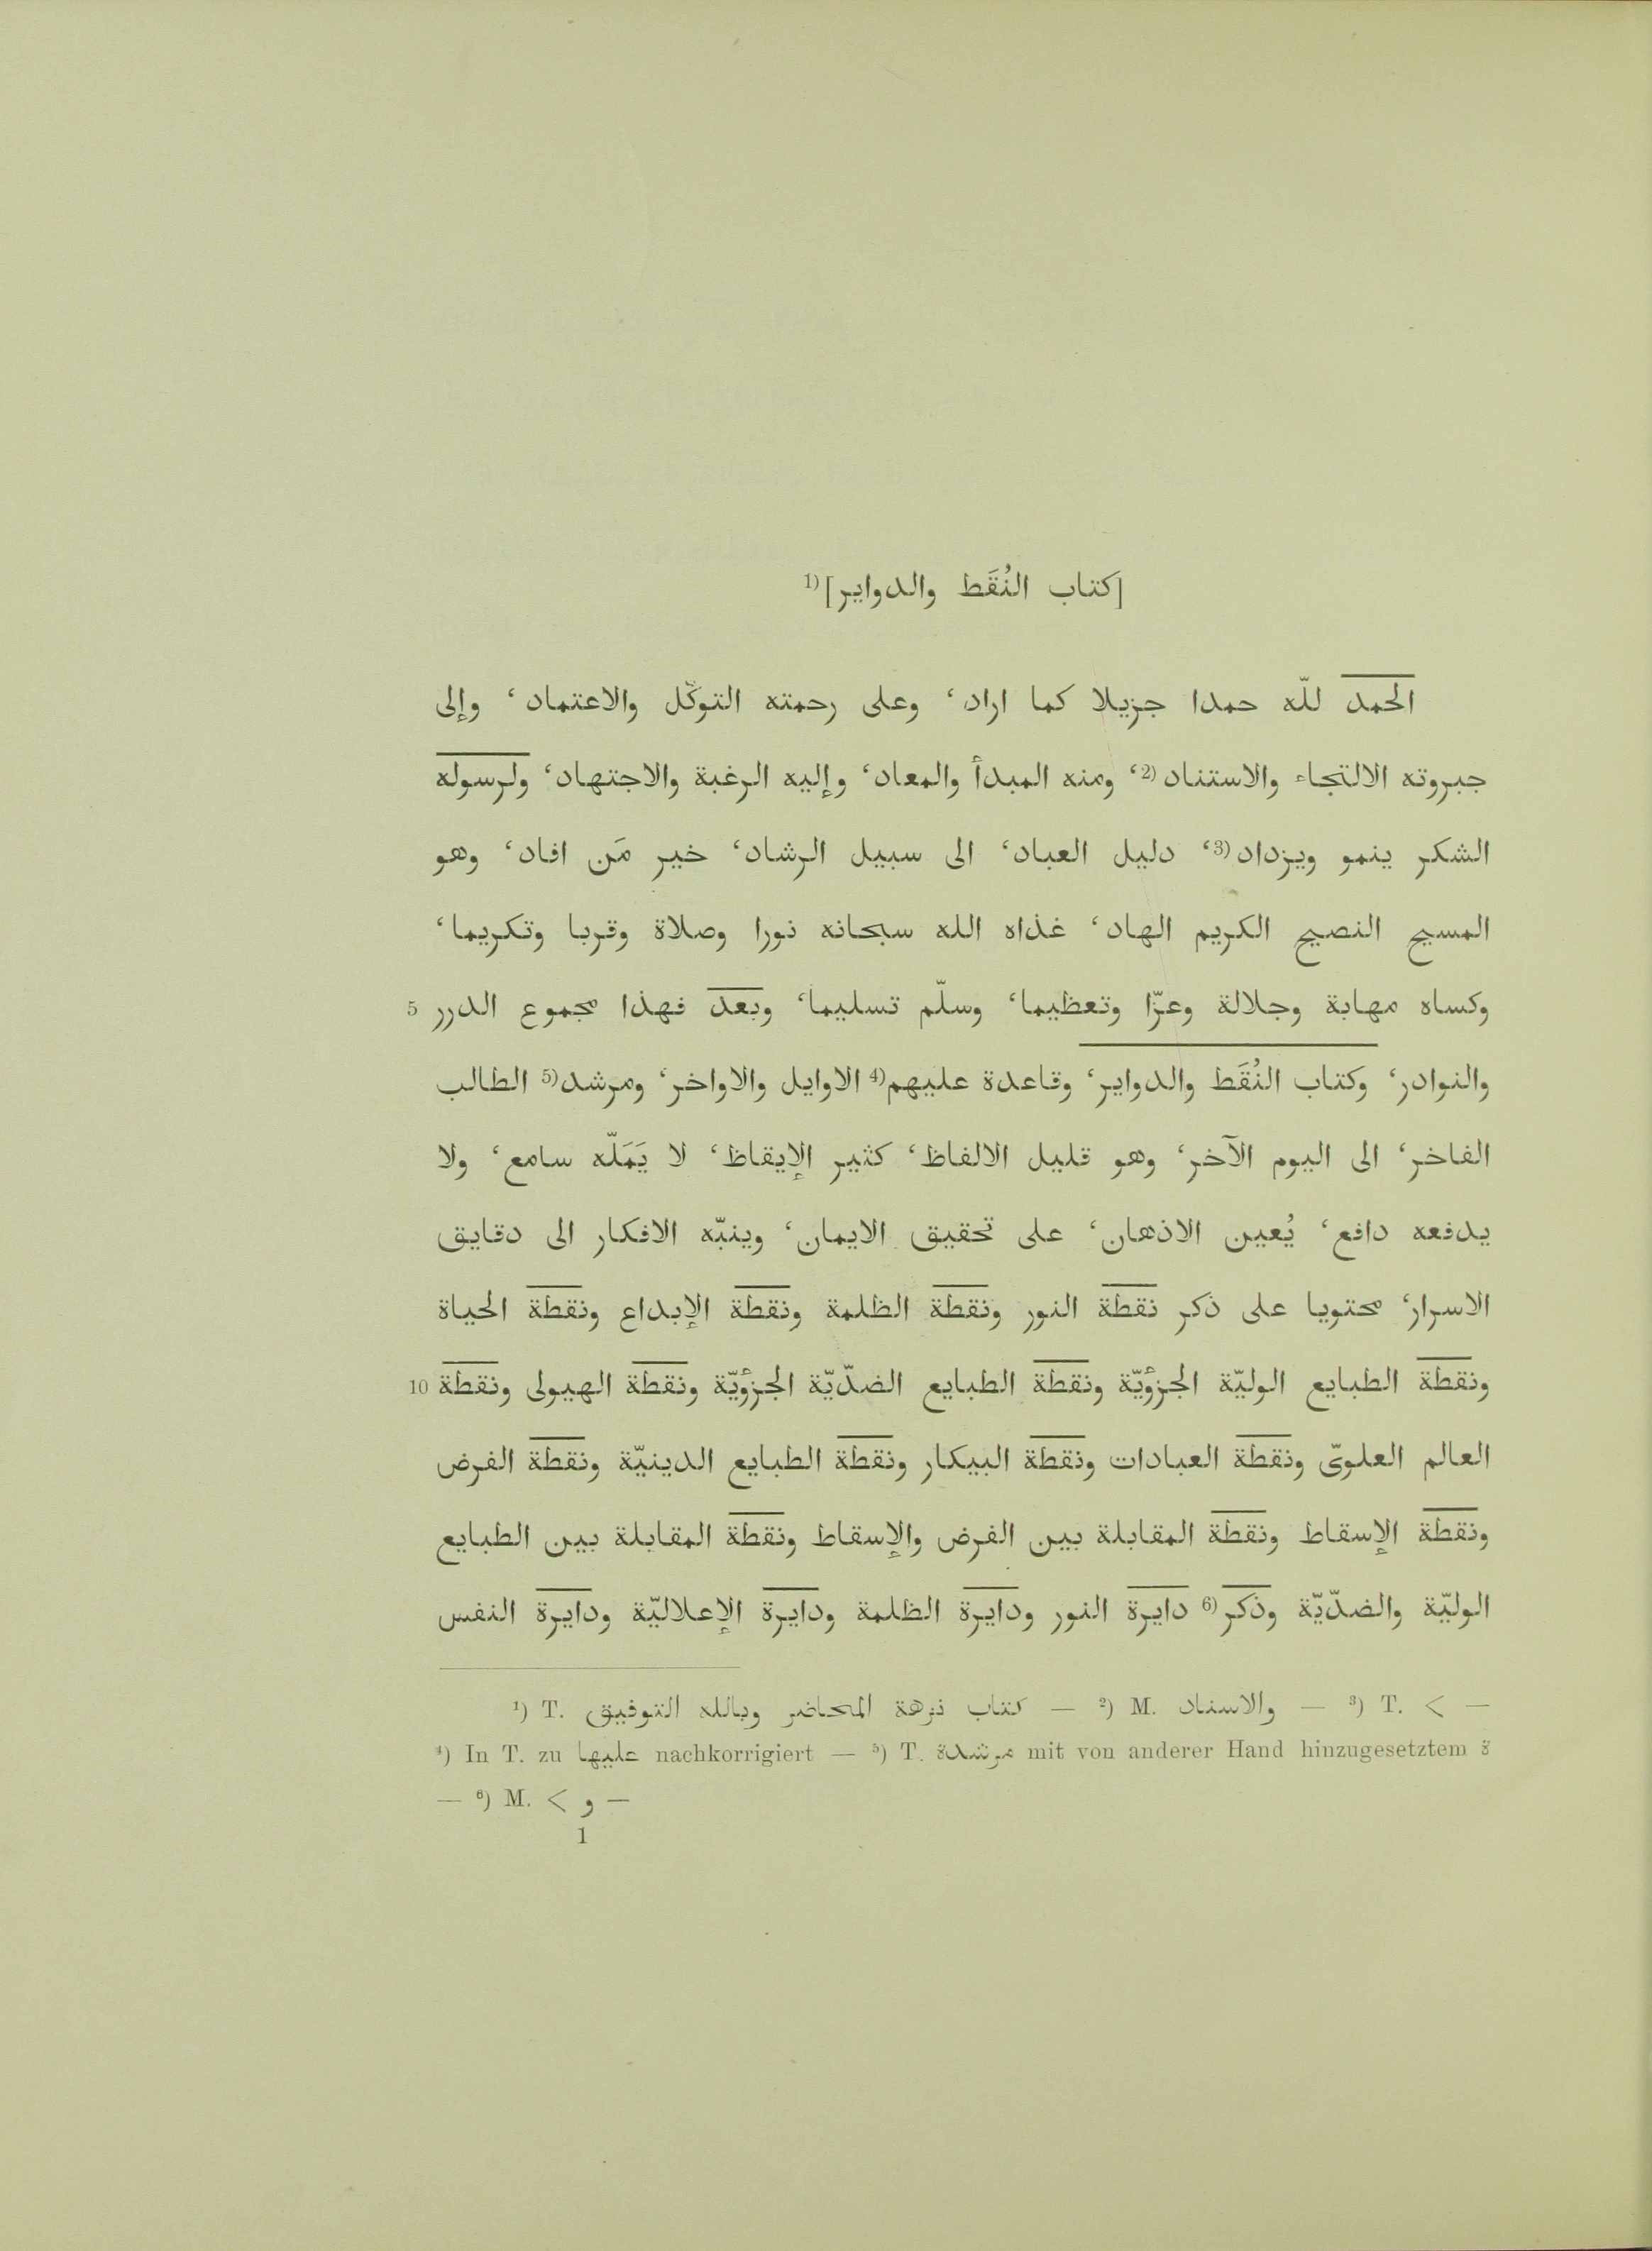 [كتاب النُقَط والدواير]¹⁾
الحمد للّه حمدا جزيلا كما اراد، وعلى رحمته التوكّل والاعتماد، وإلى
جبروته الالتجاء والاستناد²⁾، ومنه المبدأ والمعاد، وإليه الرغبة والاجتهاد، ولرسوله
الشكر ينمو ويزداد³⁾، دليل العباد، الى سبيل الرشاد، خير مَن افاد، وهو
المسيح النصيح الكريم الهاد، غذاه الله سبحانه نورا وصلاة وقربا وتكريما،
وكساه مهابة وجلالة وعزّا وتعظيما، وسلّم تسليما، وبعد فهذا مجموع الدرر 5
والنوادر، وكتاب النُقَط والدواير، وقاعدة عليهم⁴⁾ الاوايل والاواخر، ومرشد⁵⁾ الطالب
الفاخر، الى اليوم الآخر، وهو قليل الالفاظ، كثير الإيقاظ، لا يَمَلّه سامع، ولا
يدفعه دافع، يُعين الاذهان، على تحقيق الايمان، وينبّه الافكار الى دقايق
الاسرار، محتويا على ذكر نقطة النور ونقطة الظلمة ونقطة الإبداع ونقطة الحياة
ونقطة الطبايع الوليّة الجزؤيّة ونقطة الطبايع الضدّيّة الجزؤيّة ونقطة الهيولى ونقطة 10
العالم العلوىّ ونقطة العبادات ونقطة البيكار ونقطة الطبايع الدينيّة ونقطة الفرض
ونقطة الإسقاط ونقطة المقابلة بين الفرض والإسقاط ونقطة المقابلة بين الطبايع
الوليّة والضدّيّة وذكر⁶⁾ دايرة النور ودايرة الظلمة ودايرة الإعلاليّة ودايرة النفس
¹) T. كتاب نزهة المحاضر وبالله التوفيق — ²) M. والاسناد — ³) T. < —
⁴) In T. zu عليها nachkorrigiert — ⁵) T. مرشدة mit von anderer Hand hinzugesetztem ة
— ⁶) M. < و —
1